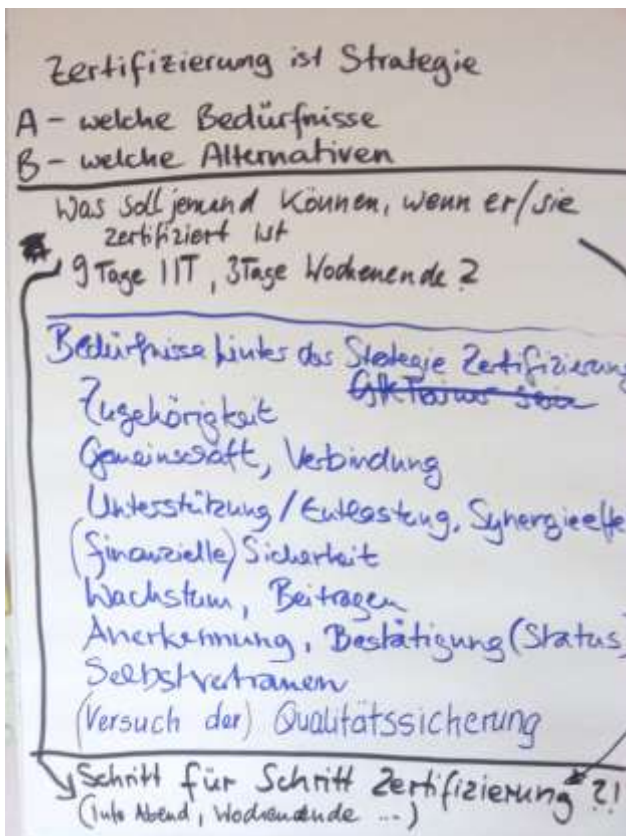 Zertifizierung ist Strategie
A - welche Bedürfnisse
B - welche Alternativen
Was soll jemand können, wenn er/sie
zertifiziert ist
9 Tage IIT, 3 Tage Wochenende ?
Bedürfnisse hinter das Strategie Zertifizierung
GfK Trainer sein
Zugehörigkeit
Gemeinschaft, Verbindung
Unterstützung / Entlastung, Synergieeffe
(finanzielle) Sicherheit
Wachstum, Beitragen
Anerkennung, Bestätigung (Status)
Selbstvertrauen
(Versuch der) Qualitätssicherung
Schritt für Schritt Zertifizierung ?!
(Info Abend, Wochenende ...)